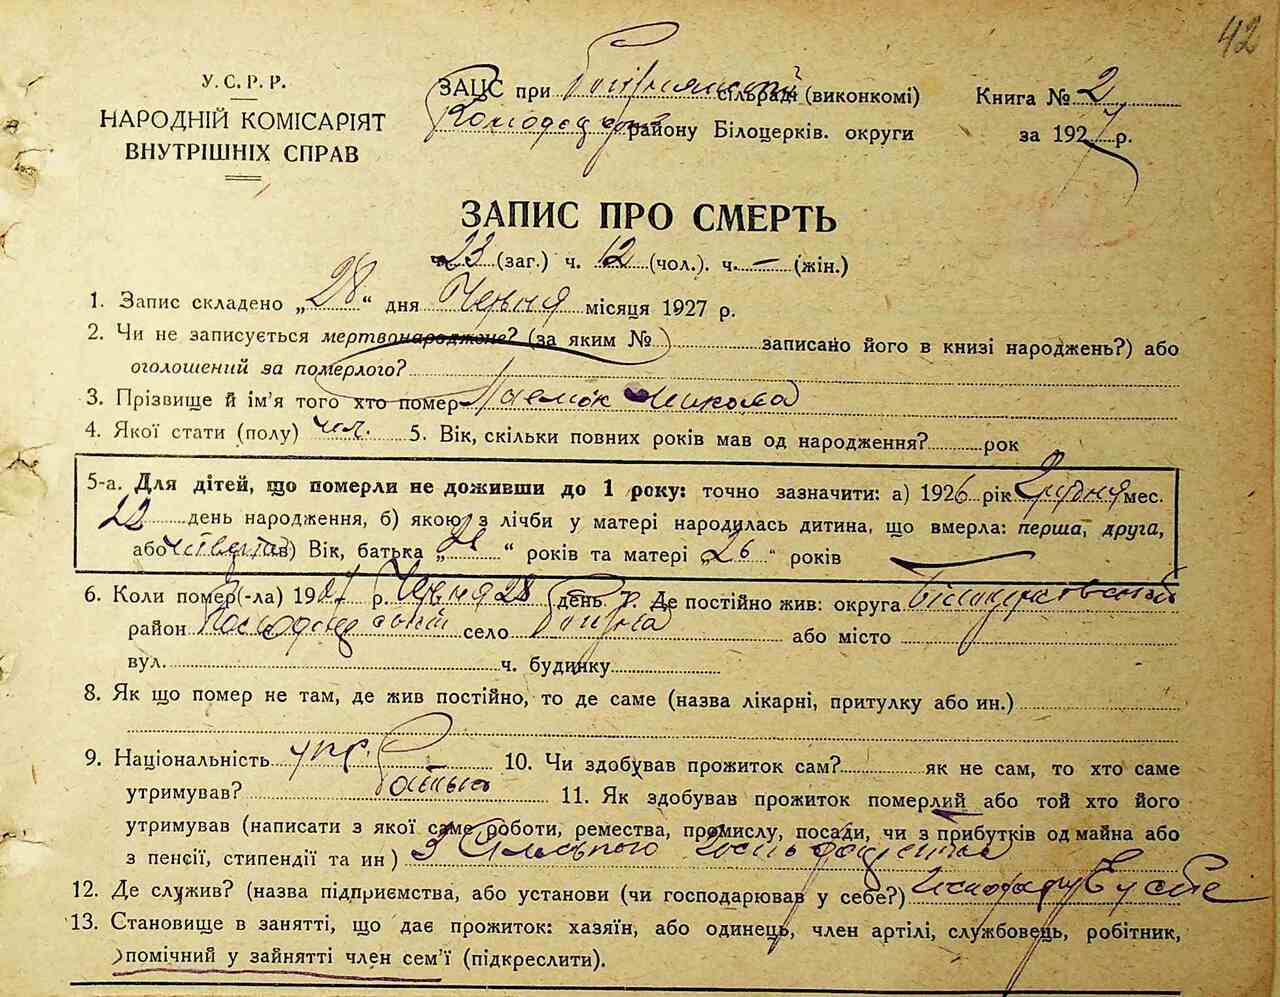 42
У.С.Р.Р.
НАРОДНІЙ КОМІСАРІЯТ
ВНУТРІШНІХ СПРАВ
ЗАЦС при сільраді (виконкомі)
району Білоцерків. округи
Книга № 2
за 1927 р.
ЗАПИС ПРО СМЕРТЬ
ч. 23 (заг.) ч. 12 (чол.). ч. — (жін.)
1. Запис складено „28“ дня Червня місяця 1927 р.
2. Чи не записується мертвонароджене? (за яким № ) записано його в книзі народжень?) або
оголошений за померлого?
3. Прізвище й ім'я того хто помер Микола
4. Якої стати (полу) чол. 5. Вік, скільки повних років мав од народження? рок
5-а. Для дітей, що померли не доживши до 1 року: точно зазначити: а) 1926 рік Грудня мес.
22 день народження, б) якою з лічби у матері народилась дитина, що вмерла: перша, друга,
або четверта в) Вік, батька „ “ років та матері „26“ років
6. Коли помер(-ла) 1927 р. Червня 28 день 7. Де постійно жив: округа Білоцерківський
район село або місто
вул. ч. будинку
8. Як що помер не там, де жив постійно, то де саме (назва лікарні, притулку або ин.)
9. Національність укр. 10. Чи здобував прожиток сам? як не сам, то хто саме
утримував? батько 11. Як здобував прожиток померлий або той хто його
утримував (написати з якої саме роботи, ремества, промислу, посади, чи з прибутків од майна або
з пенсії, стипендії та ин) З Сільського
12. Де служив? (назва підприємства, або установи (чи господарював у себе?) господарував у себе
13. Становище в занятті, що дає прожиток: хазяїн, або одинець, член артілі, службовець, робітник,
помічний у зайнятті член сем'ї (підкреслити).